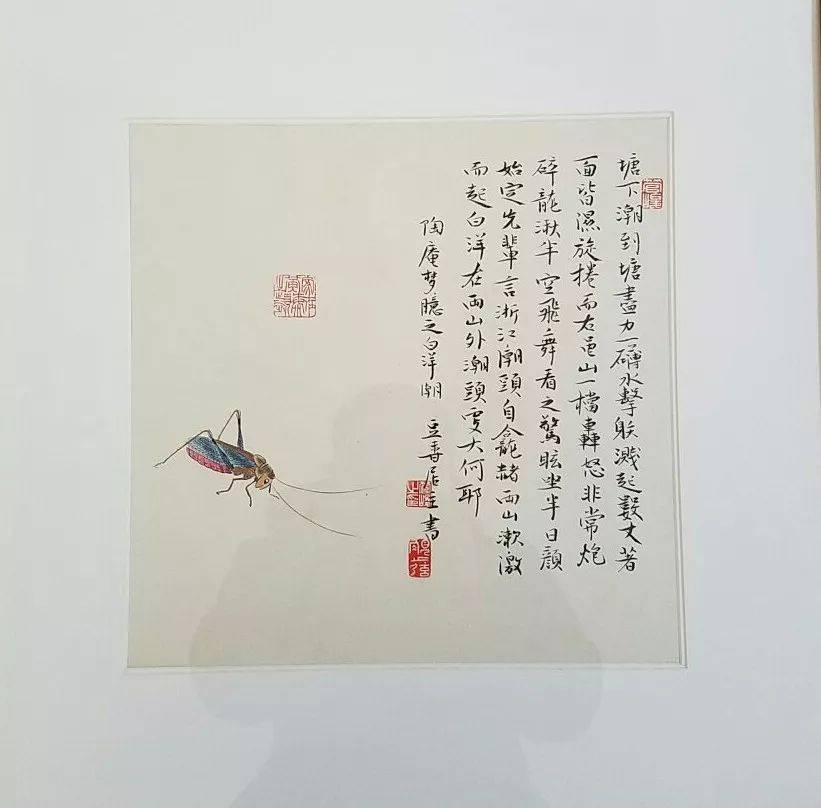 塘下潮到塘盡力一礴水擊射濺起數丈著
面皆濕旋捲而右龜山一檔轟怒非常炮
碎龍湫半空飛舞看之驚眩坐半日顏
始定先輩言浙江潮頭自龕赭兩山漱激
而起白洋在兩山外潮頭更大何耶
陶庵梦臆之白洋潮 豆香居主書